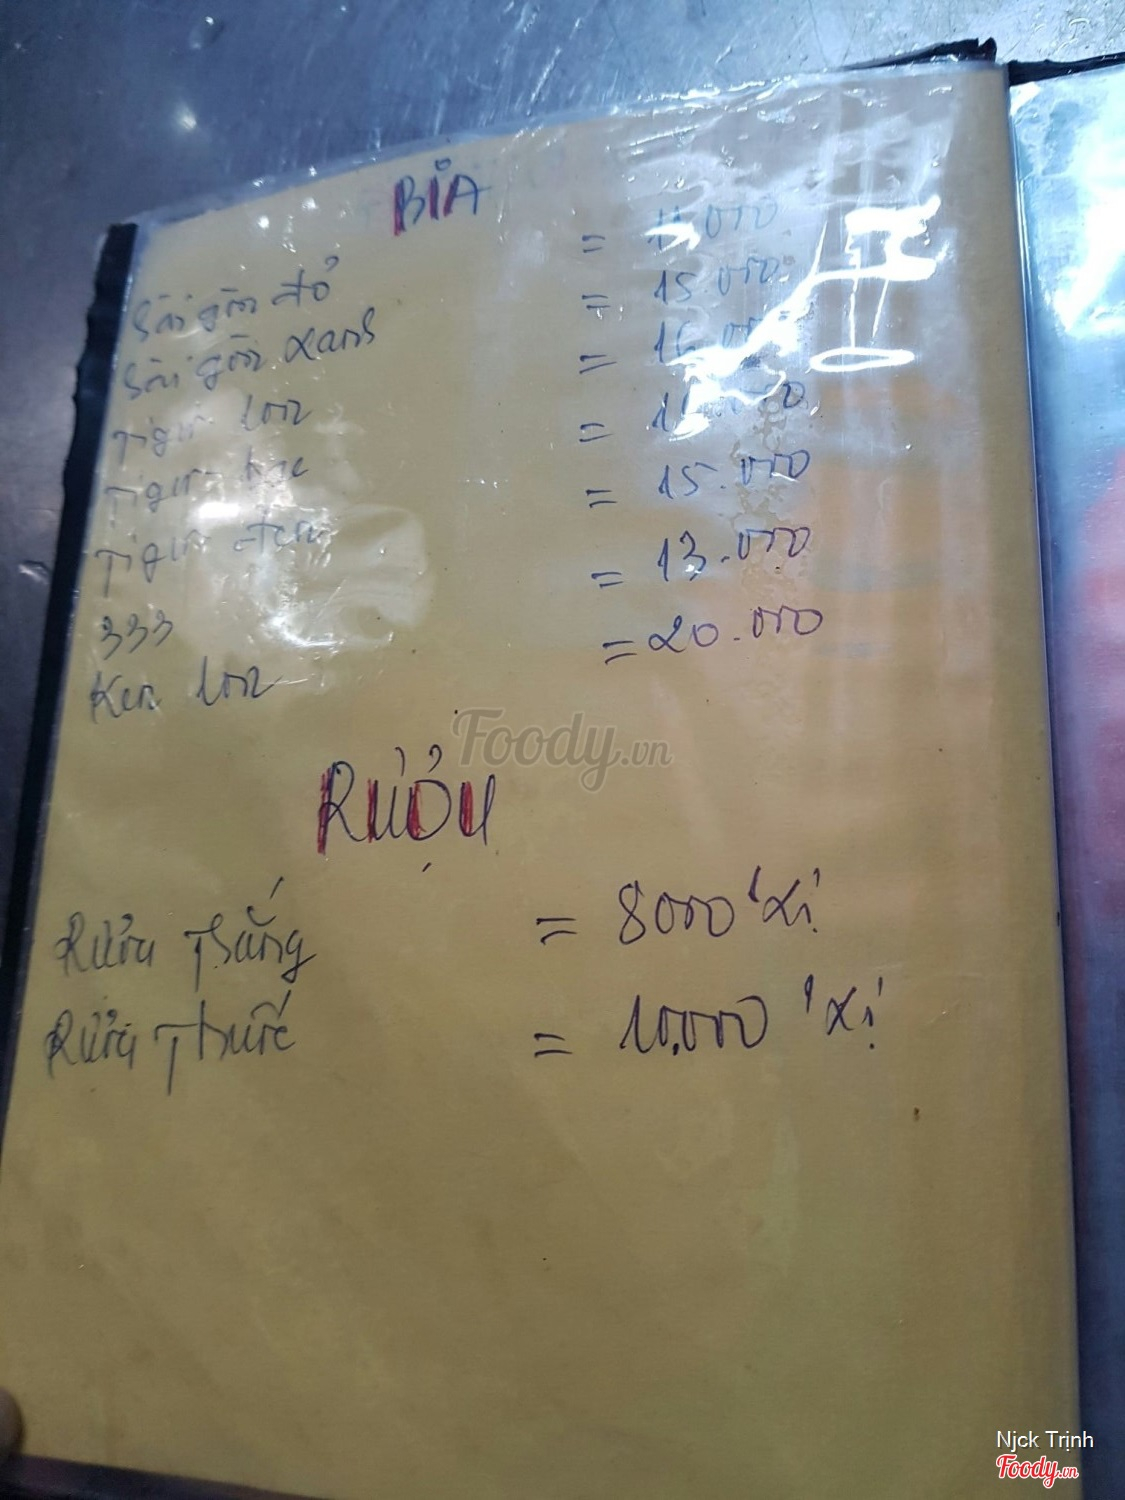 BIA
Sài gòn đỏ = 11.000
Sài gòn xanh = 15.000
Tiger lon = 16.000
Tiger bạc =
Tiger đen = 15.000
333 = 13.000
Ken lon = 20.000
Foody.vn
RƯỢU
Rượu Thắng = 8000 1 xị
Rượu Thuốc = 10.000 1 xị
Njck Trịnh
Foody.vn